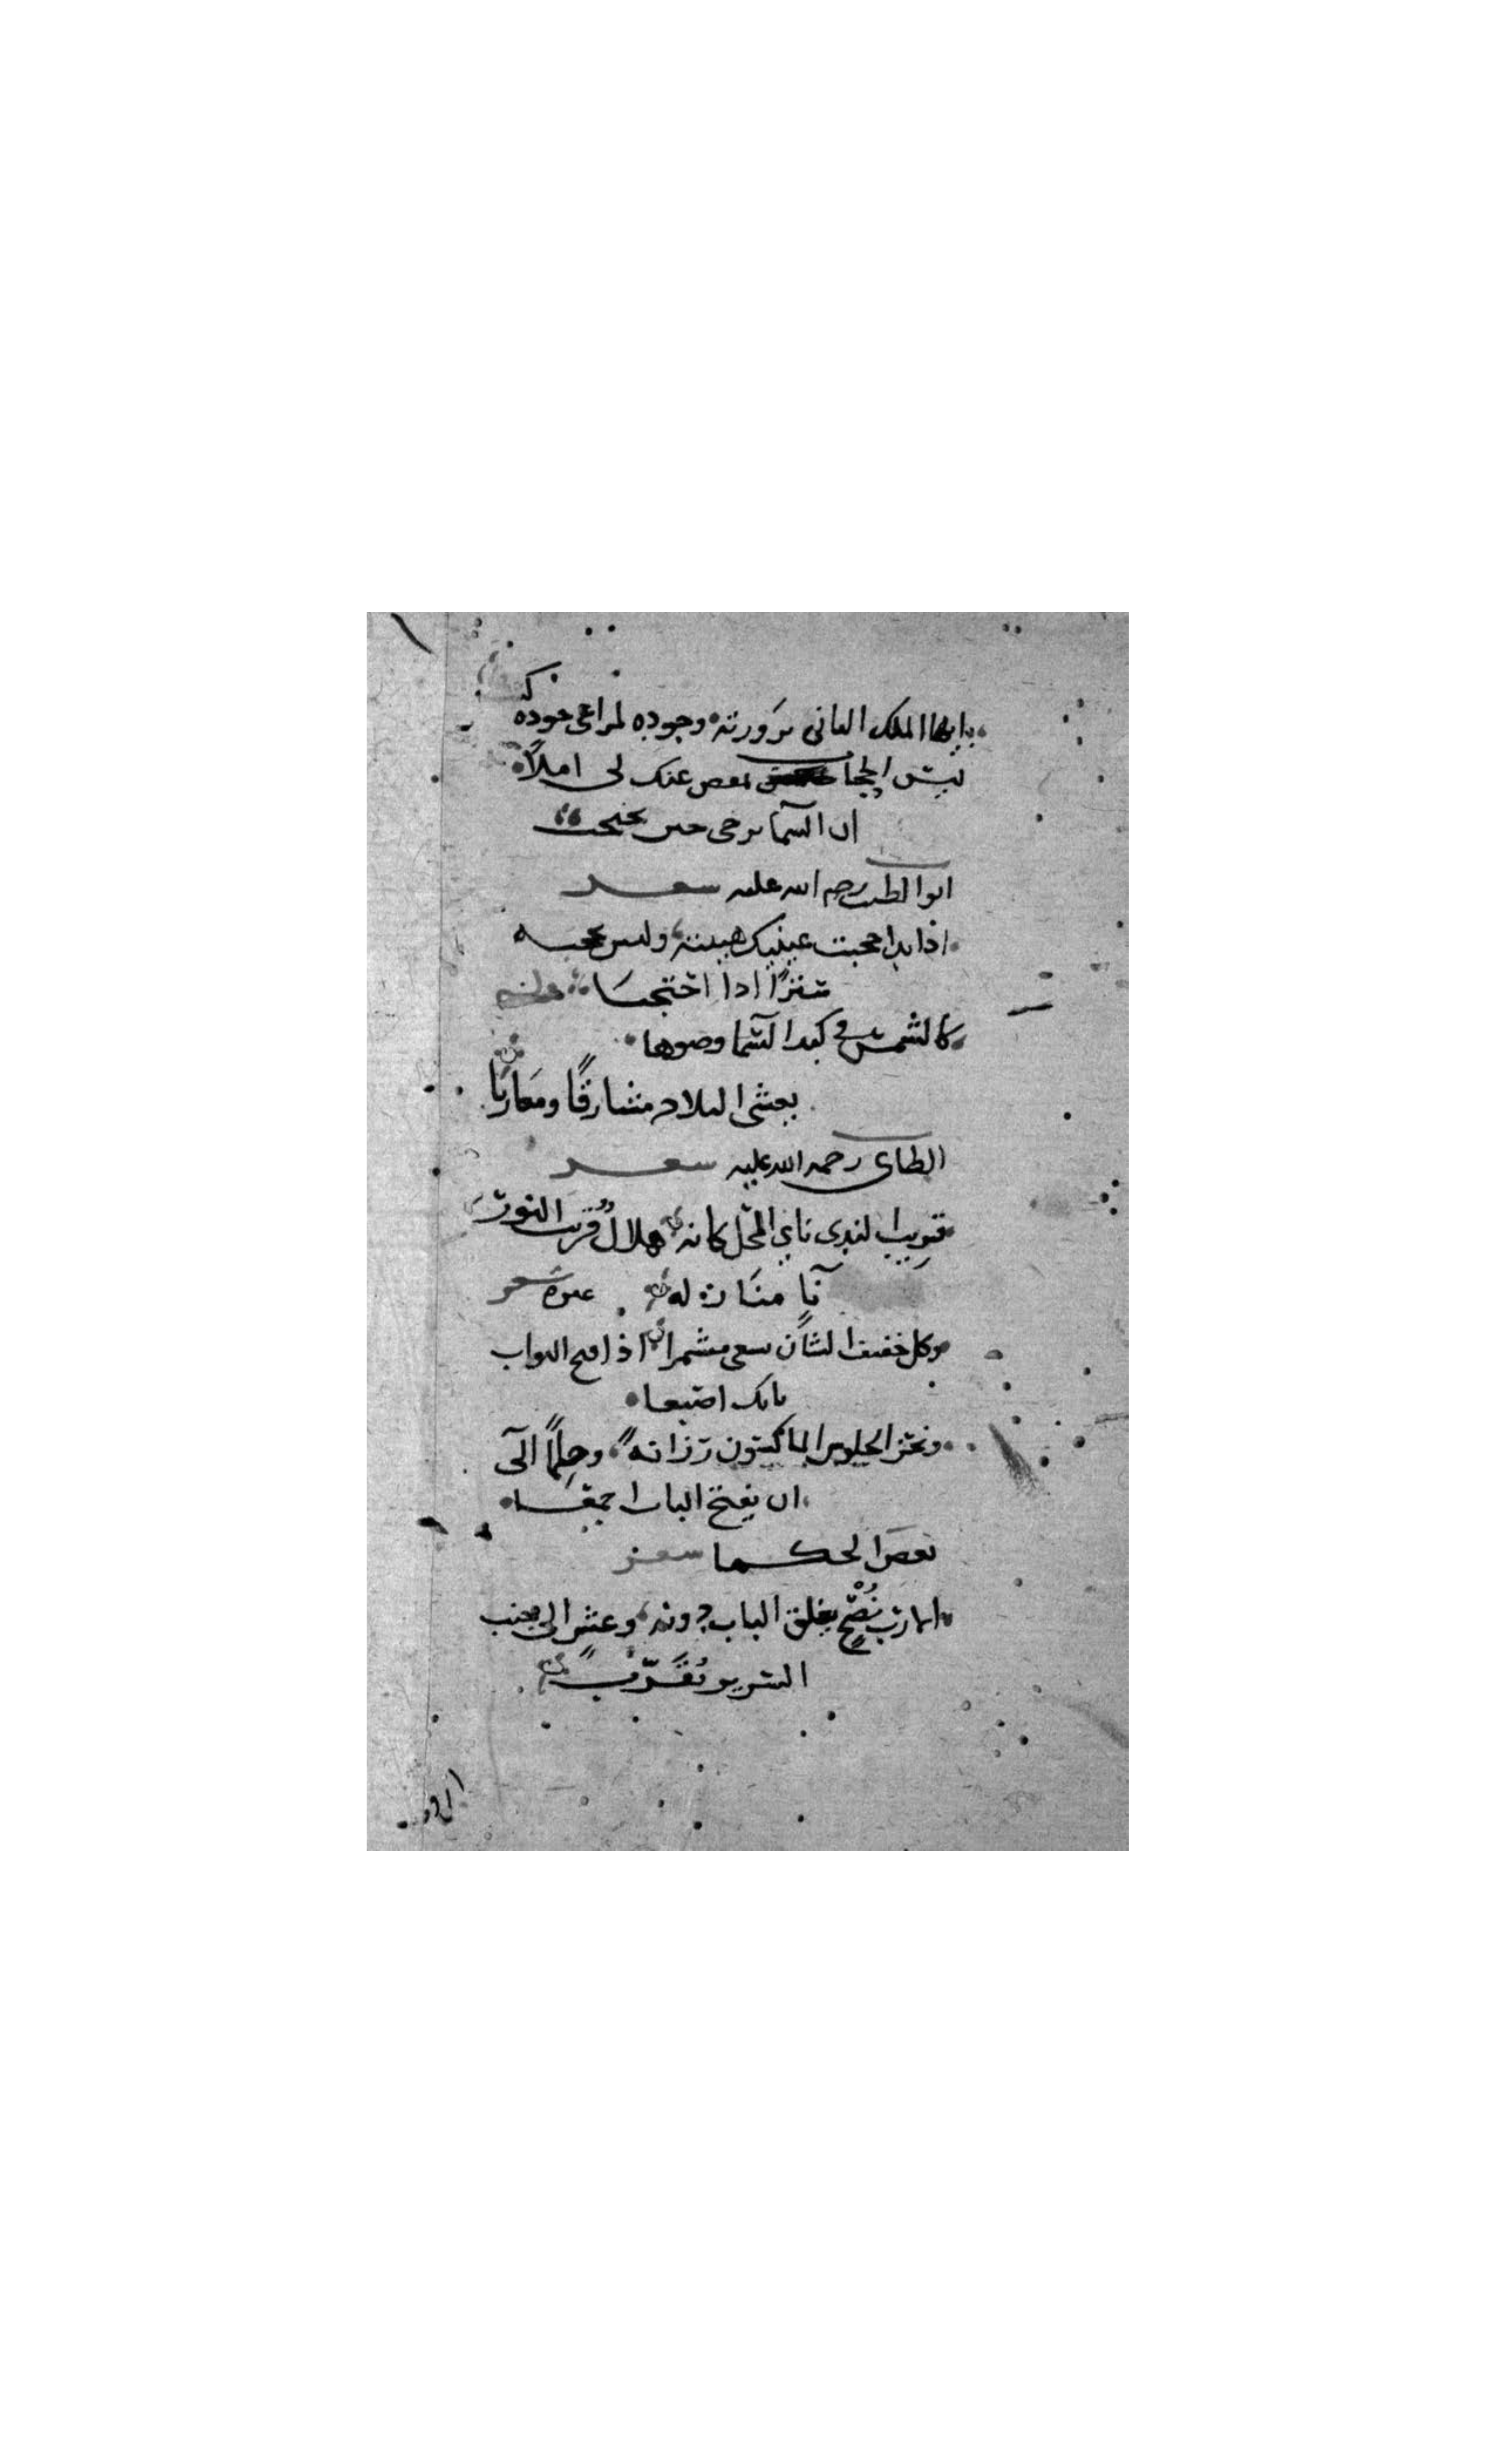 يا ايها الملك النائي برؤيته وجوده لمراعي جوده كثب
ليس الحجاب بمقص عنك لي املاً
ان السما ترجى حين تحتجب
ابو الطيب رحمة الله عليه شعر
اذا بدا حجبت عينيك هيبته وليس يحجبه
ستراً اذا احتجبا
كالشمس في كبد السما وضوها
يغشى البلاد مشارقًا ومغاربًا
الطائي رحمه الله عليه شعر
قريب الندى نائي المحل كانه هلالٌ قريب النور
نآءٍ منازله غيره شعر
وكل خفيف الشأن يسعى مشمرا اذا فتح البواب
بابك اصبعا
ونحن الجلوس الماكثون رزانةً وحلماً الى
ان يفتح الباب اجمعا
بعض الحكما شعر
الا رب نُصْحٍ يغلق الباب دونه وغشٍ الى جنب
السرير يُقَرَّبُ